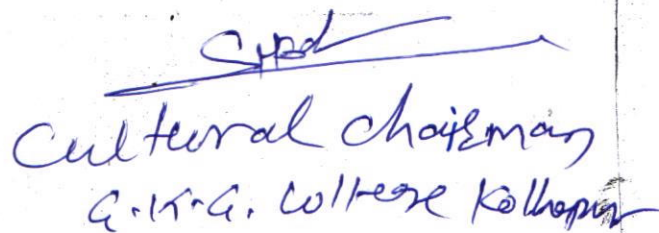 Cultural Chairman
G.K.G. College Kolhapur